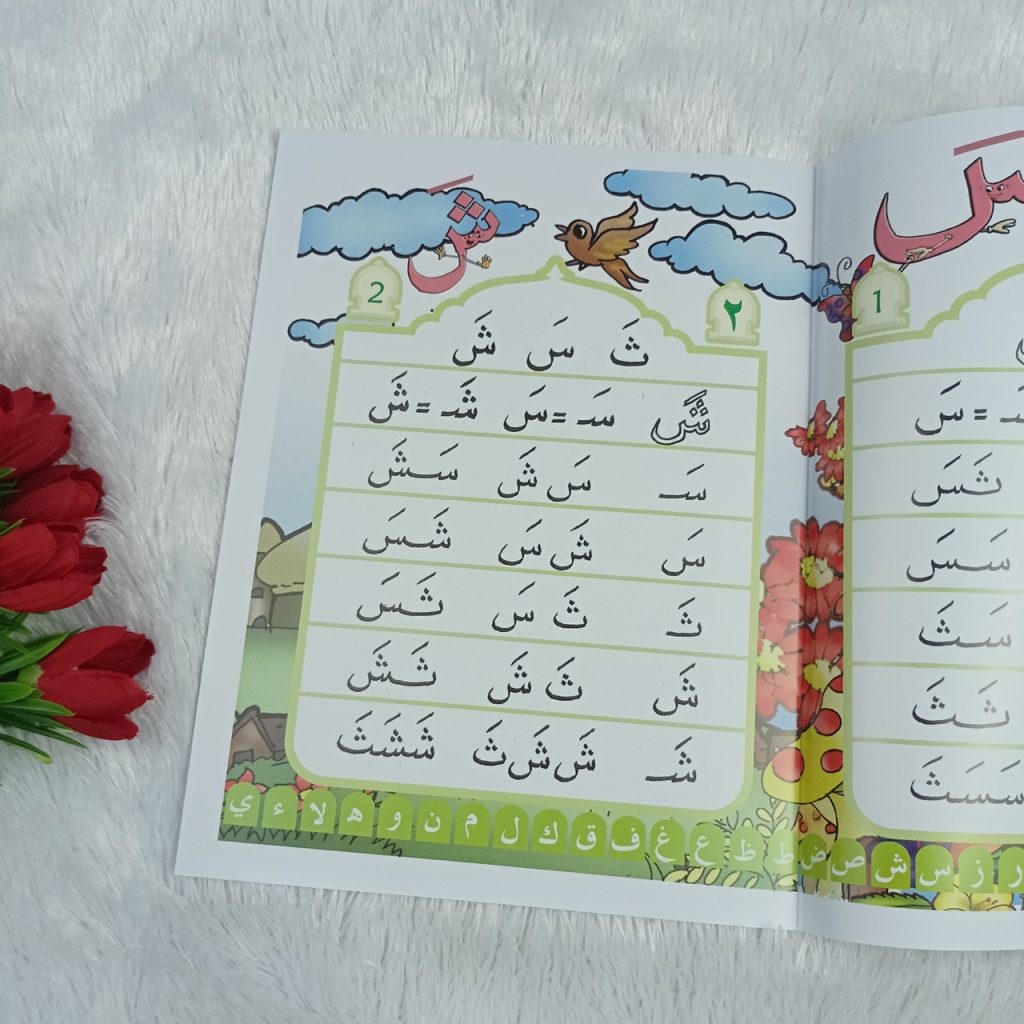 سَ
1
سَـ = سَ
ثَسَ
سَسَ
سَثَ
ثَثَ
سَسَثَ
ر ز س ش ص ض
شَ
٢ 2
ثَ سَ شَ
شَ سَـ = سَ شَـ = شَ
سَـ سَ شَ سَشَ
سَ شَ سَ شَسَ
ثَـ ثَ سَ ثَسَ
شَ ثَ شَ ثَشَ
شَـ شَ شَ ثَ شَشَثَ
ط ظ ع غ ف ق ك ل م ن و ه لا ء ي